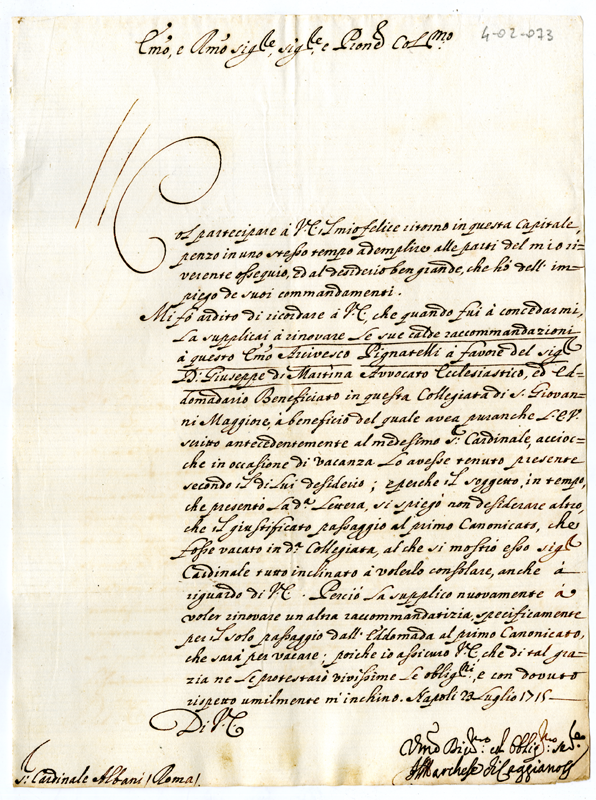 4-02-073
Emo, e Rmo sigre, sigre, e Pron Colmo
Col partecipare à V.E. il mio felice ritorno in questa Capitale,
penzo in uno stesso tempo ademplire alle parti del mio ri-
verente ossequio, ed al desiderio ben grande, che hò dell' im-
piego de suoi commandamenti.
Mi fò ardito di ricordare à V.E., che quando fui à concedarmi,
La supplicai à rinovare Le sue calde raccommandazioni
à questo Emo Arcivesco Pignatelli à favore del sigr
D. Giuseppe di Martina Avvocato Ecclesiastico, ed Ed-
domadario Beneficiato in questa Collegiata di S. Giovan-
ni Maggiore, à beneficio del quale avea puranche L'E.V.
scritto antecedentemente al medesimo Sr. Cardinale, accioc-
che in occasione di vacanza Lo avesse tenuto presente
secondo il di Lui desiderio; e perche il soggetto, in tempo,
che presentò La da. Lettera, si spiegò non desiderare altro,
che il giustificato passaggio al primo Canonicato, che
fosse vacato in da. Collegiata, al che si mostrò esso sigr
Cardinale tutto inclinato à volerlo consolare, anche à
riguardo di V.E. Perciò La supplico nuovamente à
voler rinovare un altra raccommandatizia, specificamente
per il solo passaggio dall' Eddomada al primo Canonicato,
che sarà per vacare; poiche io assicuro V.E., che di tal gra-
zia ne Le protestarò vivissime Le obligni, e con dovuto
rispetto umilmente m'inchino. Napoli 23 Luglio 1715
Di V.E.
Sr. Cardinale Albani (Roma)
Il Marchese di